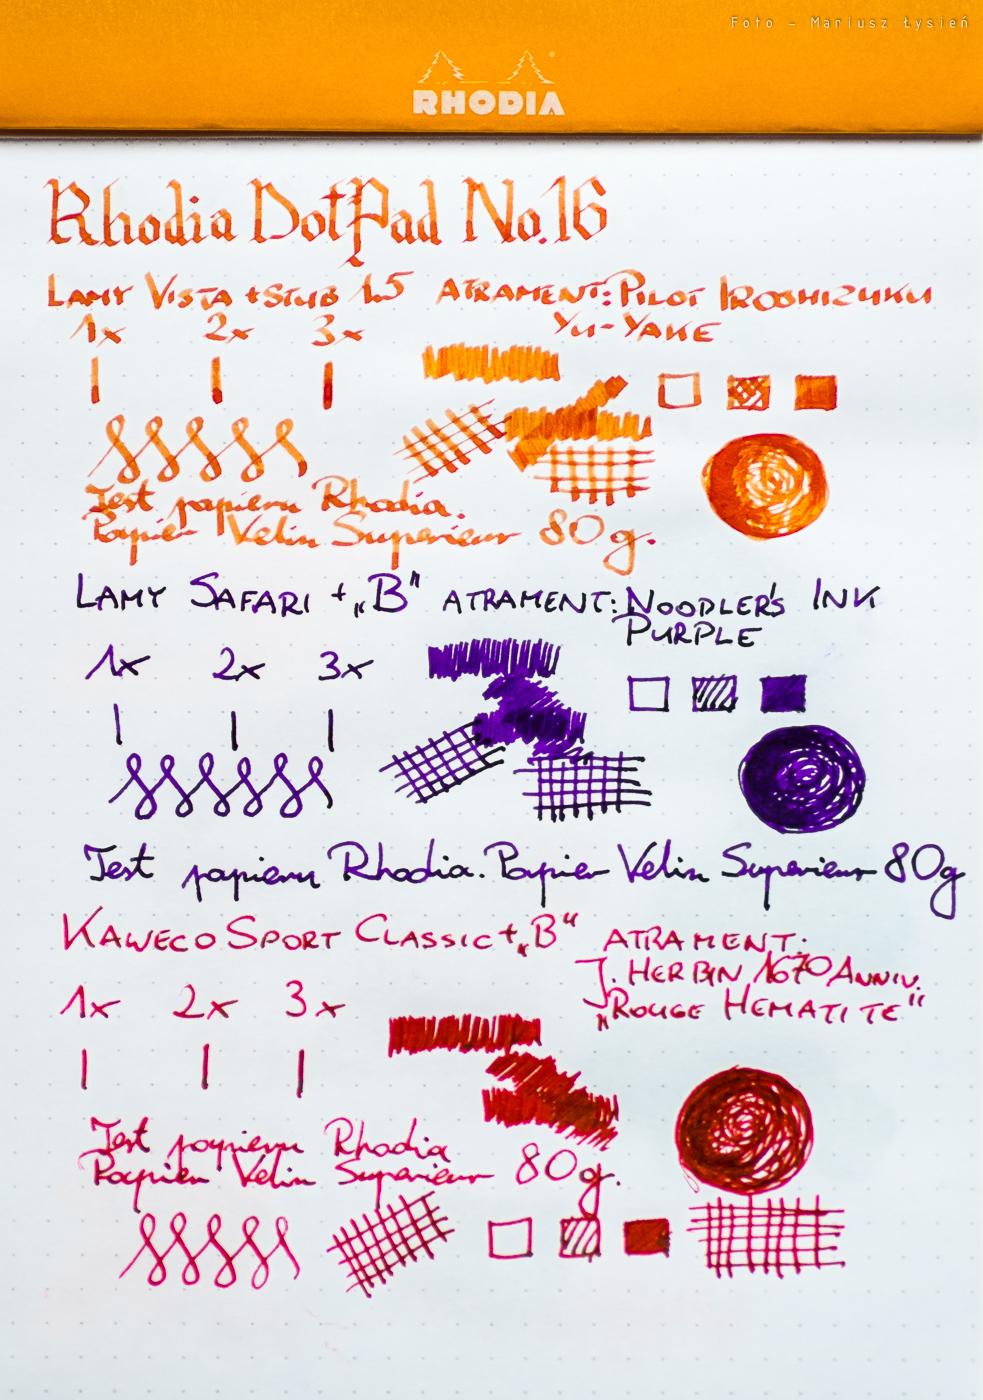 Foto - Mariusz Łysień
RHODIA
Rhodia DotPad No.16
LAMY VISTA + STUB 1.5 ATRAMENT: PILOT IROSHIZUKU
YU-YAKE
1x 2x 3x
Test papieru Rhodia.
Papier Velin Superieur 80g.
LAMY SAFARI + „B" ATRAMENT: NOODLER'S INK
PURPLE
1x 2x 3x
Test papieru Rhodia. Papier Velin Superieur 80g
KAWECO SPORT CLASSIC + „B" ATRAMENT:
J. HERBIN 1670 ANNIV.
„ROUGE HEMATITE"
1x 2x 3x
Test papieru Rhodia
Papier Velin Superieur 80g.